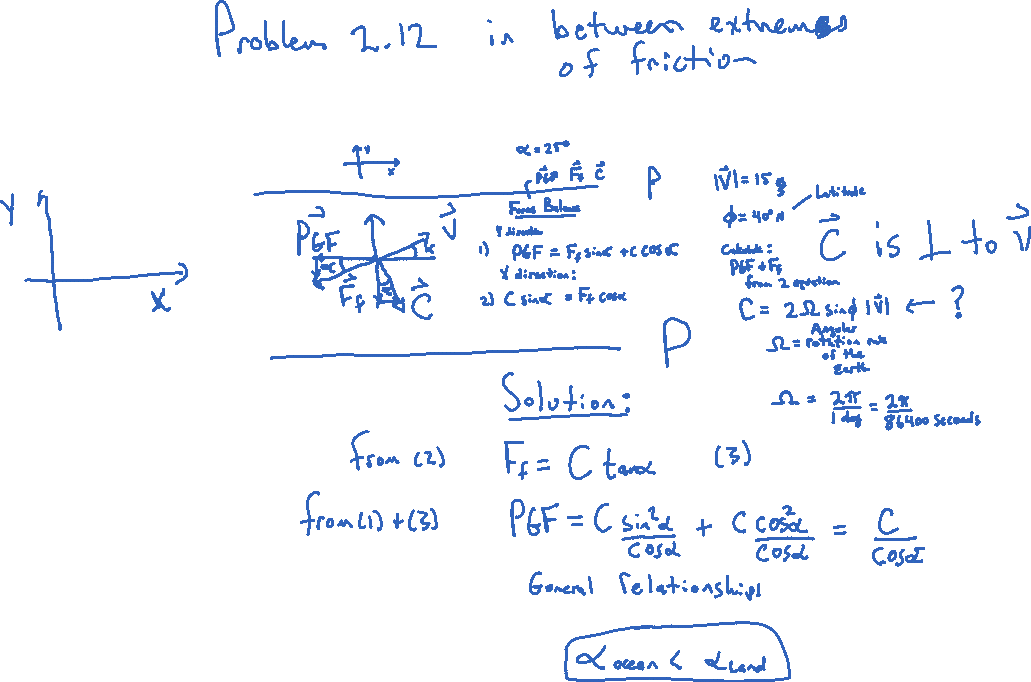 Problem 2.12 in between extremes
of friction
Y
X
Y
X
α = 25°
PGF Ff C
P
Force Balance
Y direction
1) PGF = Ff sinα + C cosα
X direction:
2) C sinα = Ff cosα
PGF
V
α
α
Ff
α
C
|V| = 15 m/s
φ = 40° N
Latitude
Calculate:
PGF + Ff
from 2 equation
C is ⊥ to V
C = 2Ω sinφ |V| ← ?
Ω = Angular
rotation rate
of the
Earth
Ω = 2π/1 day = 2π/86400 seconds
P
Solution:
from (2) Ff = C tanα (3)
from (1) + (3) PGF = C sin²α/cosα + C cos²α/cosα = C/cosα
General relationships
α ocean < α Land